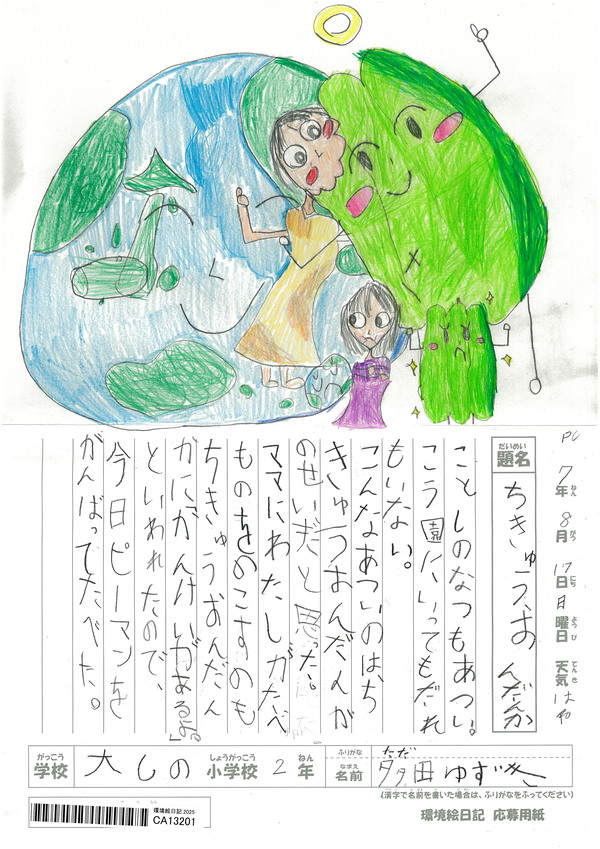 7年8月17日日曜日 天気 はれ
ねん がつ にち ようび てんき
だいめい
題名 ちきゅうおんだんか
ことしのなつもあつい。
こう園に、いってもだれ
もいない。
こんなあついのは、ち
きゅうおんだんが
のせいだと思った。
ママにわたしがたべ
ものをのこすのも
ちきゅうおんだん
かにかんけいがあるよ」
といわれたので、
今日ピーマンを
がんばってたべた。
がっこう しょうがっこう ねん
学校 大しの 小学校 2 年
ふりがな ただ
なまえ
名前 多田ゆずき
(漢字で名前を書いた場合は、ふりがなをふってください)
環境絵日記 応募用紙
環境絵日記 2025
CA13201